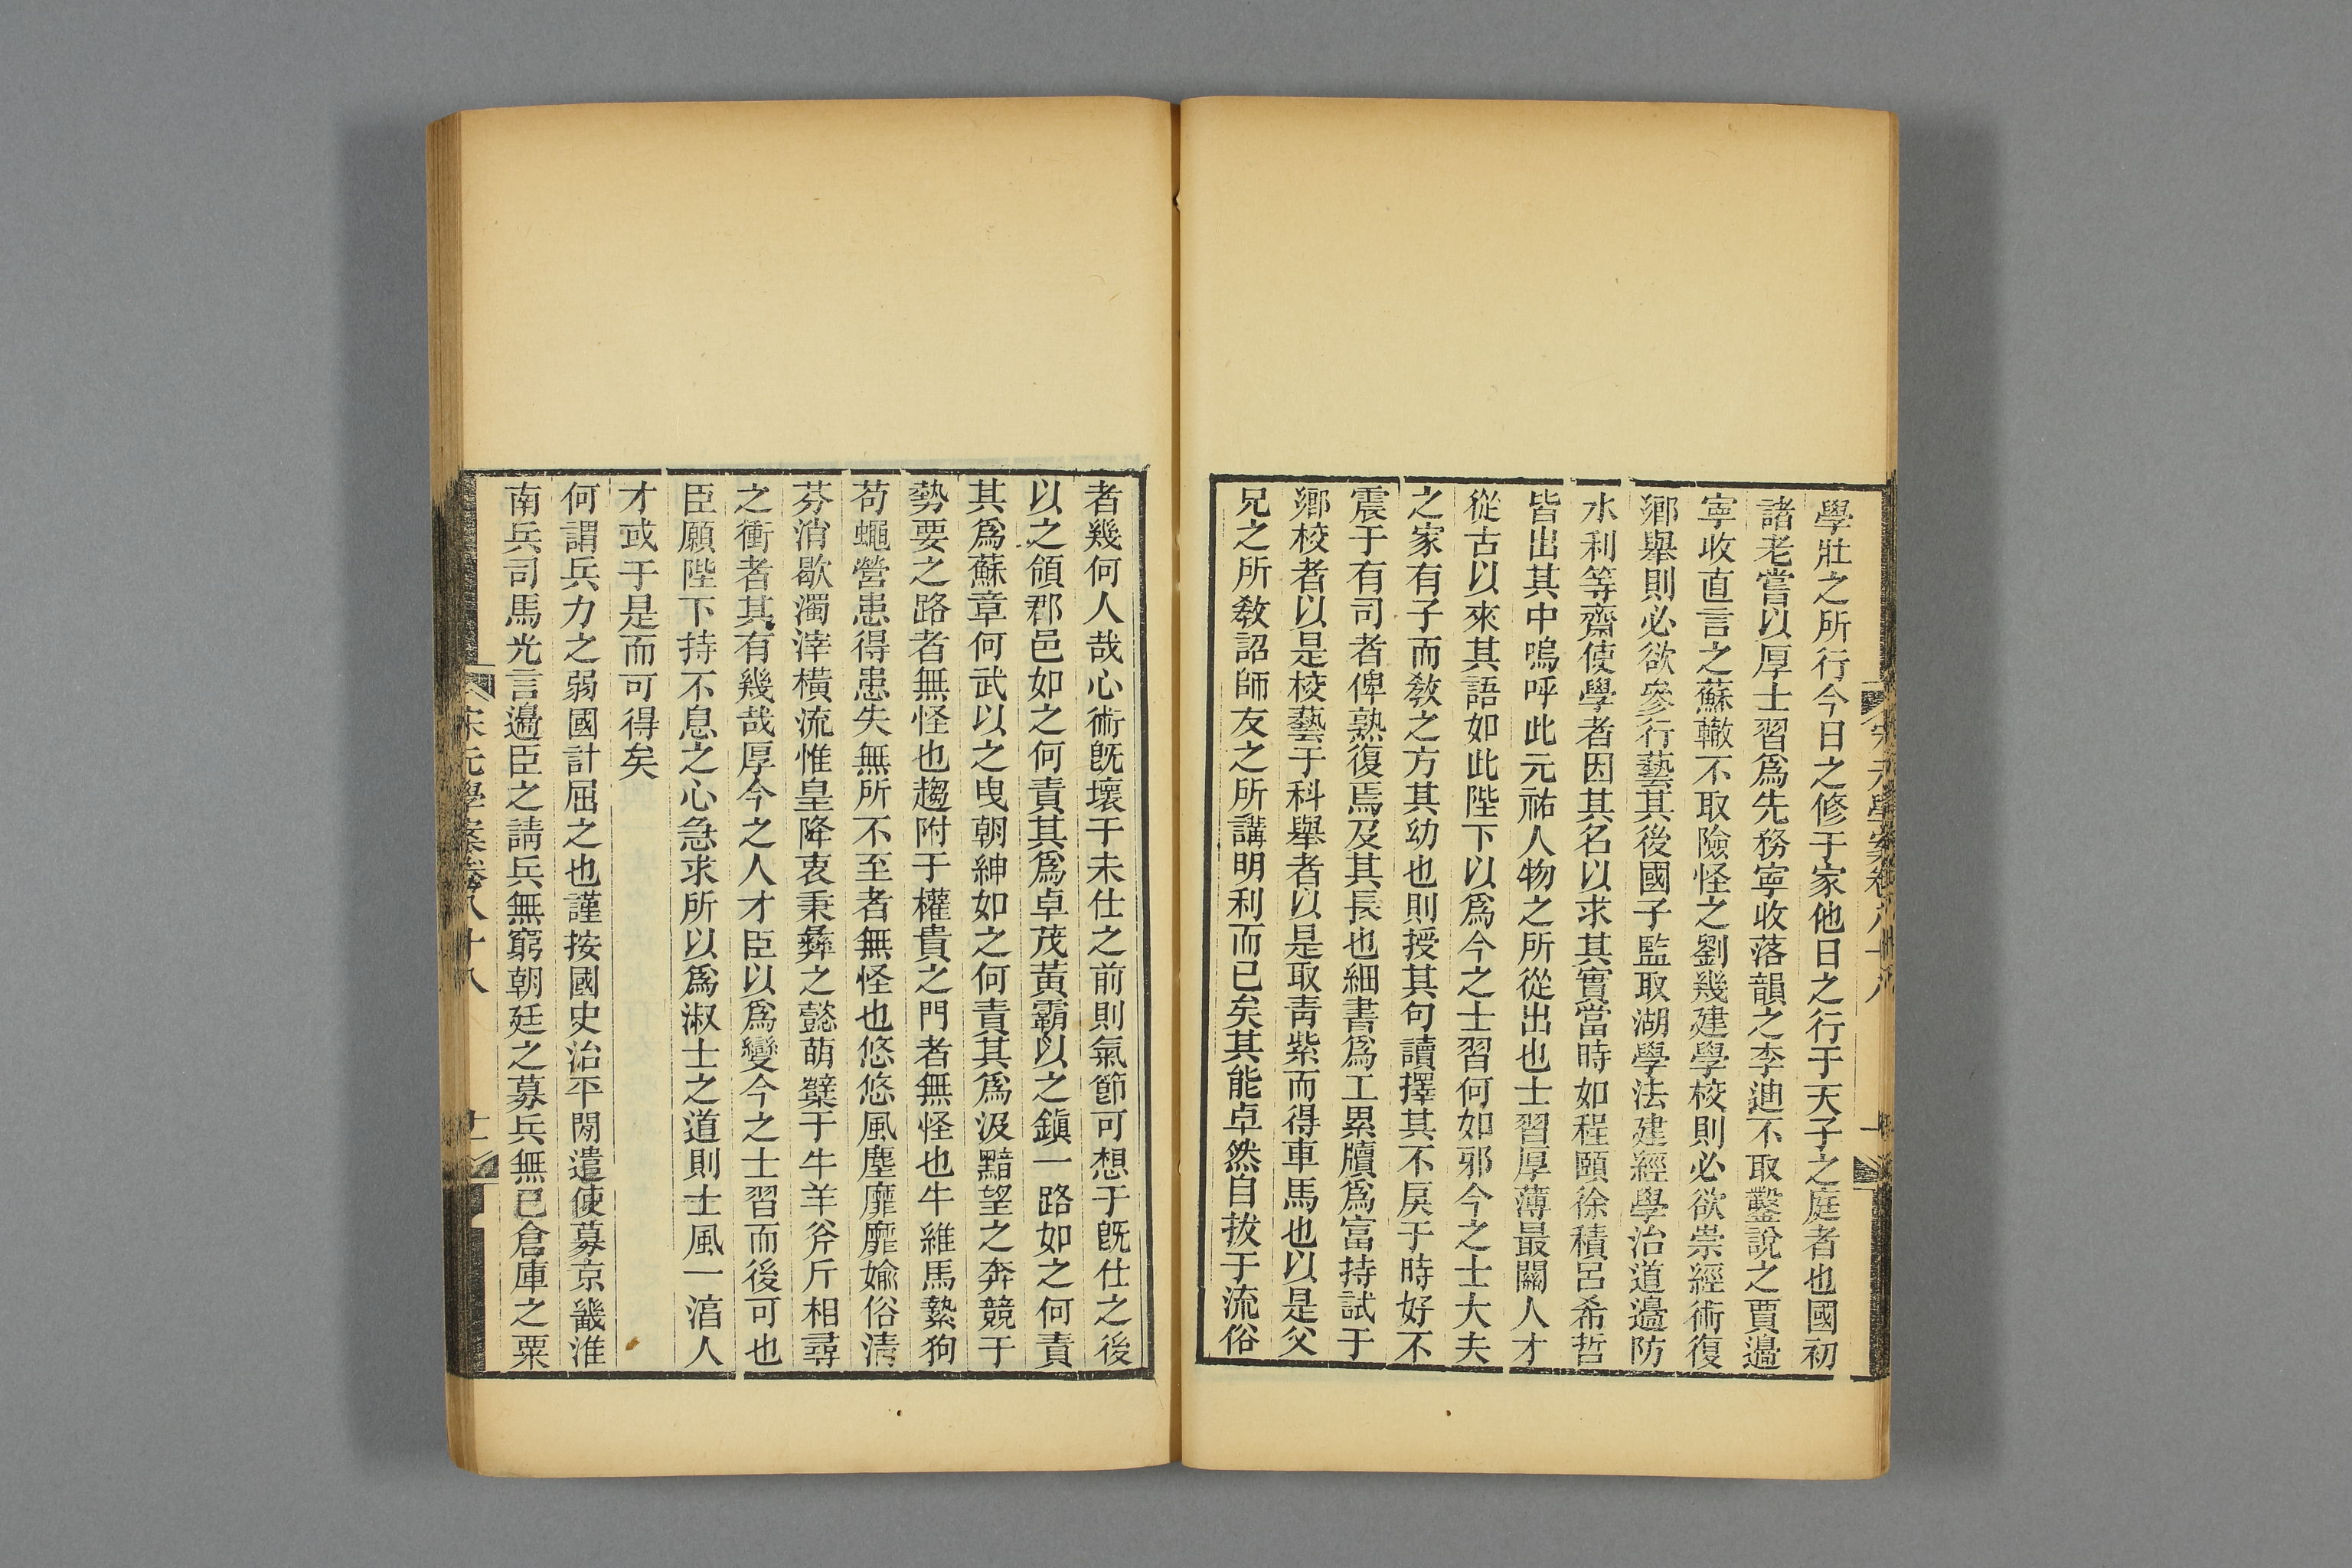 學壯之所行今日之修于家他日之行于天子之庭者也國初
諸老嘗以厚士習爲先務寧收落韻之李迪不取鑿說之賈邊
寧收直言之蘇轍不取險怪之劉幾建學校則必欲崇經術復
鄉舉則必欲參行藝其後國子監取湖學法建經學治道邊防
水利等齋使學者因其名以求其實當時如程頤徐積呂希哲
皆出其中嗚呼此元祐人物之所從出也士習厚薄最關人才
從古以來其語如此陛下以爲今之士習何如邪今之士大夫
之家有子而敎之方其幼也則授其句讀擇其不戾于時好不
震于有司者俾熟復焉及其長也細書爲工累牘爲富持試于
鄉校者以是校藝于科舉者以是取靑紫而得車馬也以是父
兄之所敎詔師友之所講明利而已矣其能卓然自拔于流俗
者幾何人哉心術旣壞于未仕之前則氣節可想于旣仕之後
以之領郡邑如之何責其爲卓茂黃霸以之鎭一路如之何責
其爲蘇章何武以之曳朝紳如之何責其爲汲黯望之奔競于
勢要之路者無怪也趨附于權貴之門者無怪也牛維馬縶狗
苟蠅營患得患失無所不至者無怪也悠悠風塵靡靡媮俗淸
芬消歇濁滓橫流惟皇降衷秉彝之懿萌櫱于牛羊斧斤相尋
之衝者其有幾哉厚今之人才臣以爲變今之士習而後可也
臣願陛下持不息之心急求所以爲淑士之道則士風一淯人
才或于是而可得矣
何謂兵力之弱國計屈之也謹按國史治平閒遣使募京畿淮
南兵司馬光言邊臣之請兵無窮朝廷之募兵無已倉庫之粟
宋元學案卷八十八